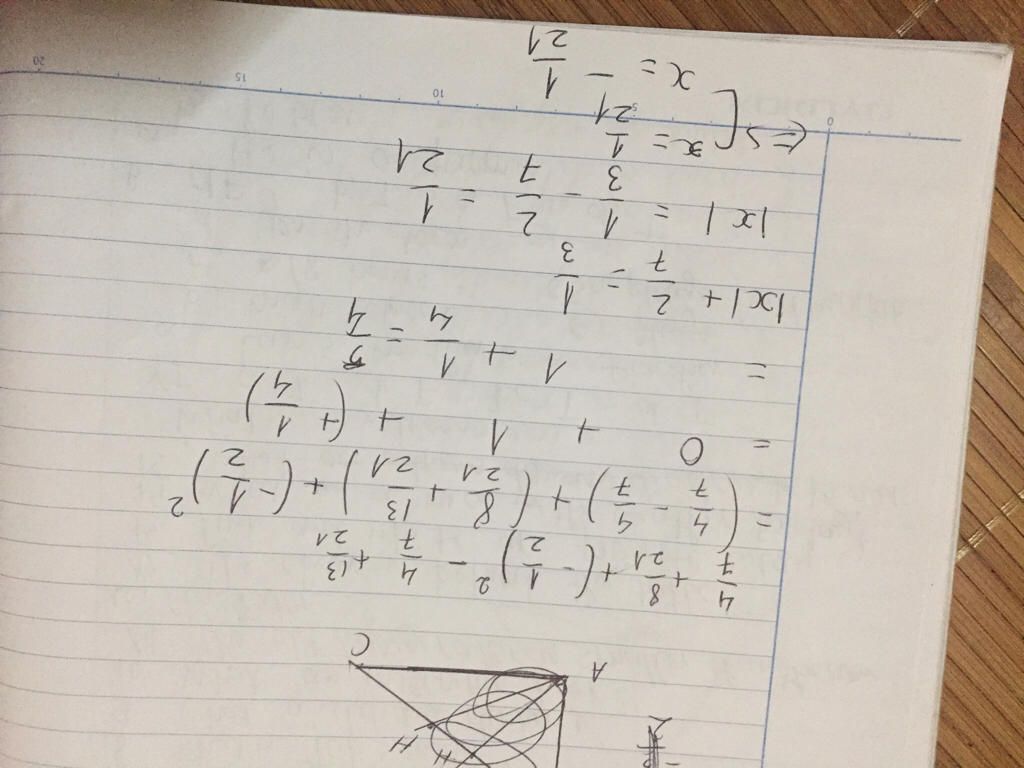 H
A
C
4/7 + 8/21 + (-1/2)² - 4/7 + 13/21
= (4/7 - 4/7) + (8/21 + 13/21) + (-1/2)²
= 0 + 1 + (+ 1/4)
= 1 + 1/4 = 5/4
|x| + 2/7 = 1/3
|x| = 1/3 - 2/7 = 1/21
<=> [ x = 1/21
x = - 1/21
0 5 10 15 20